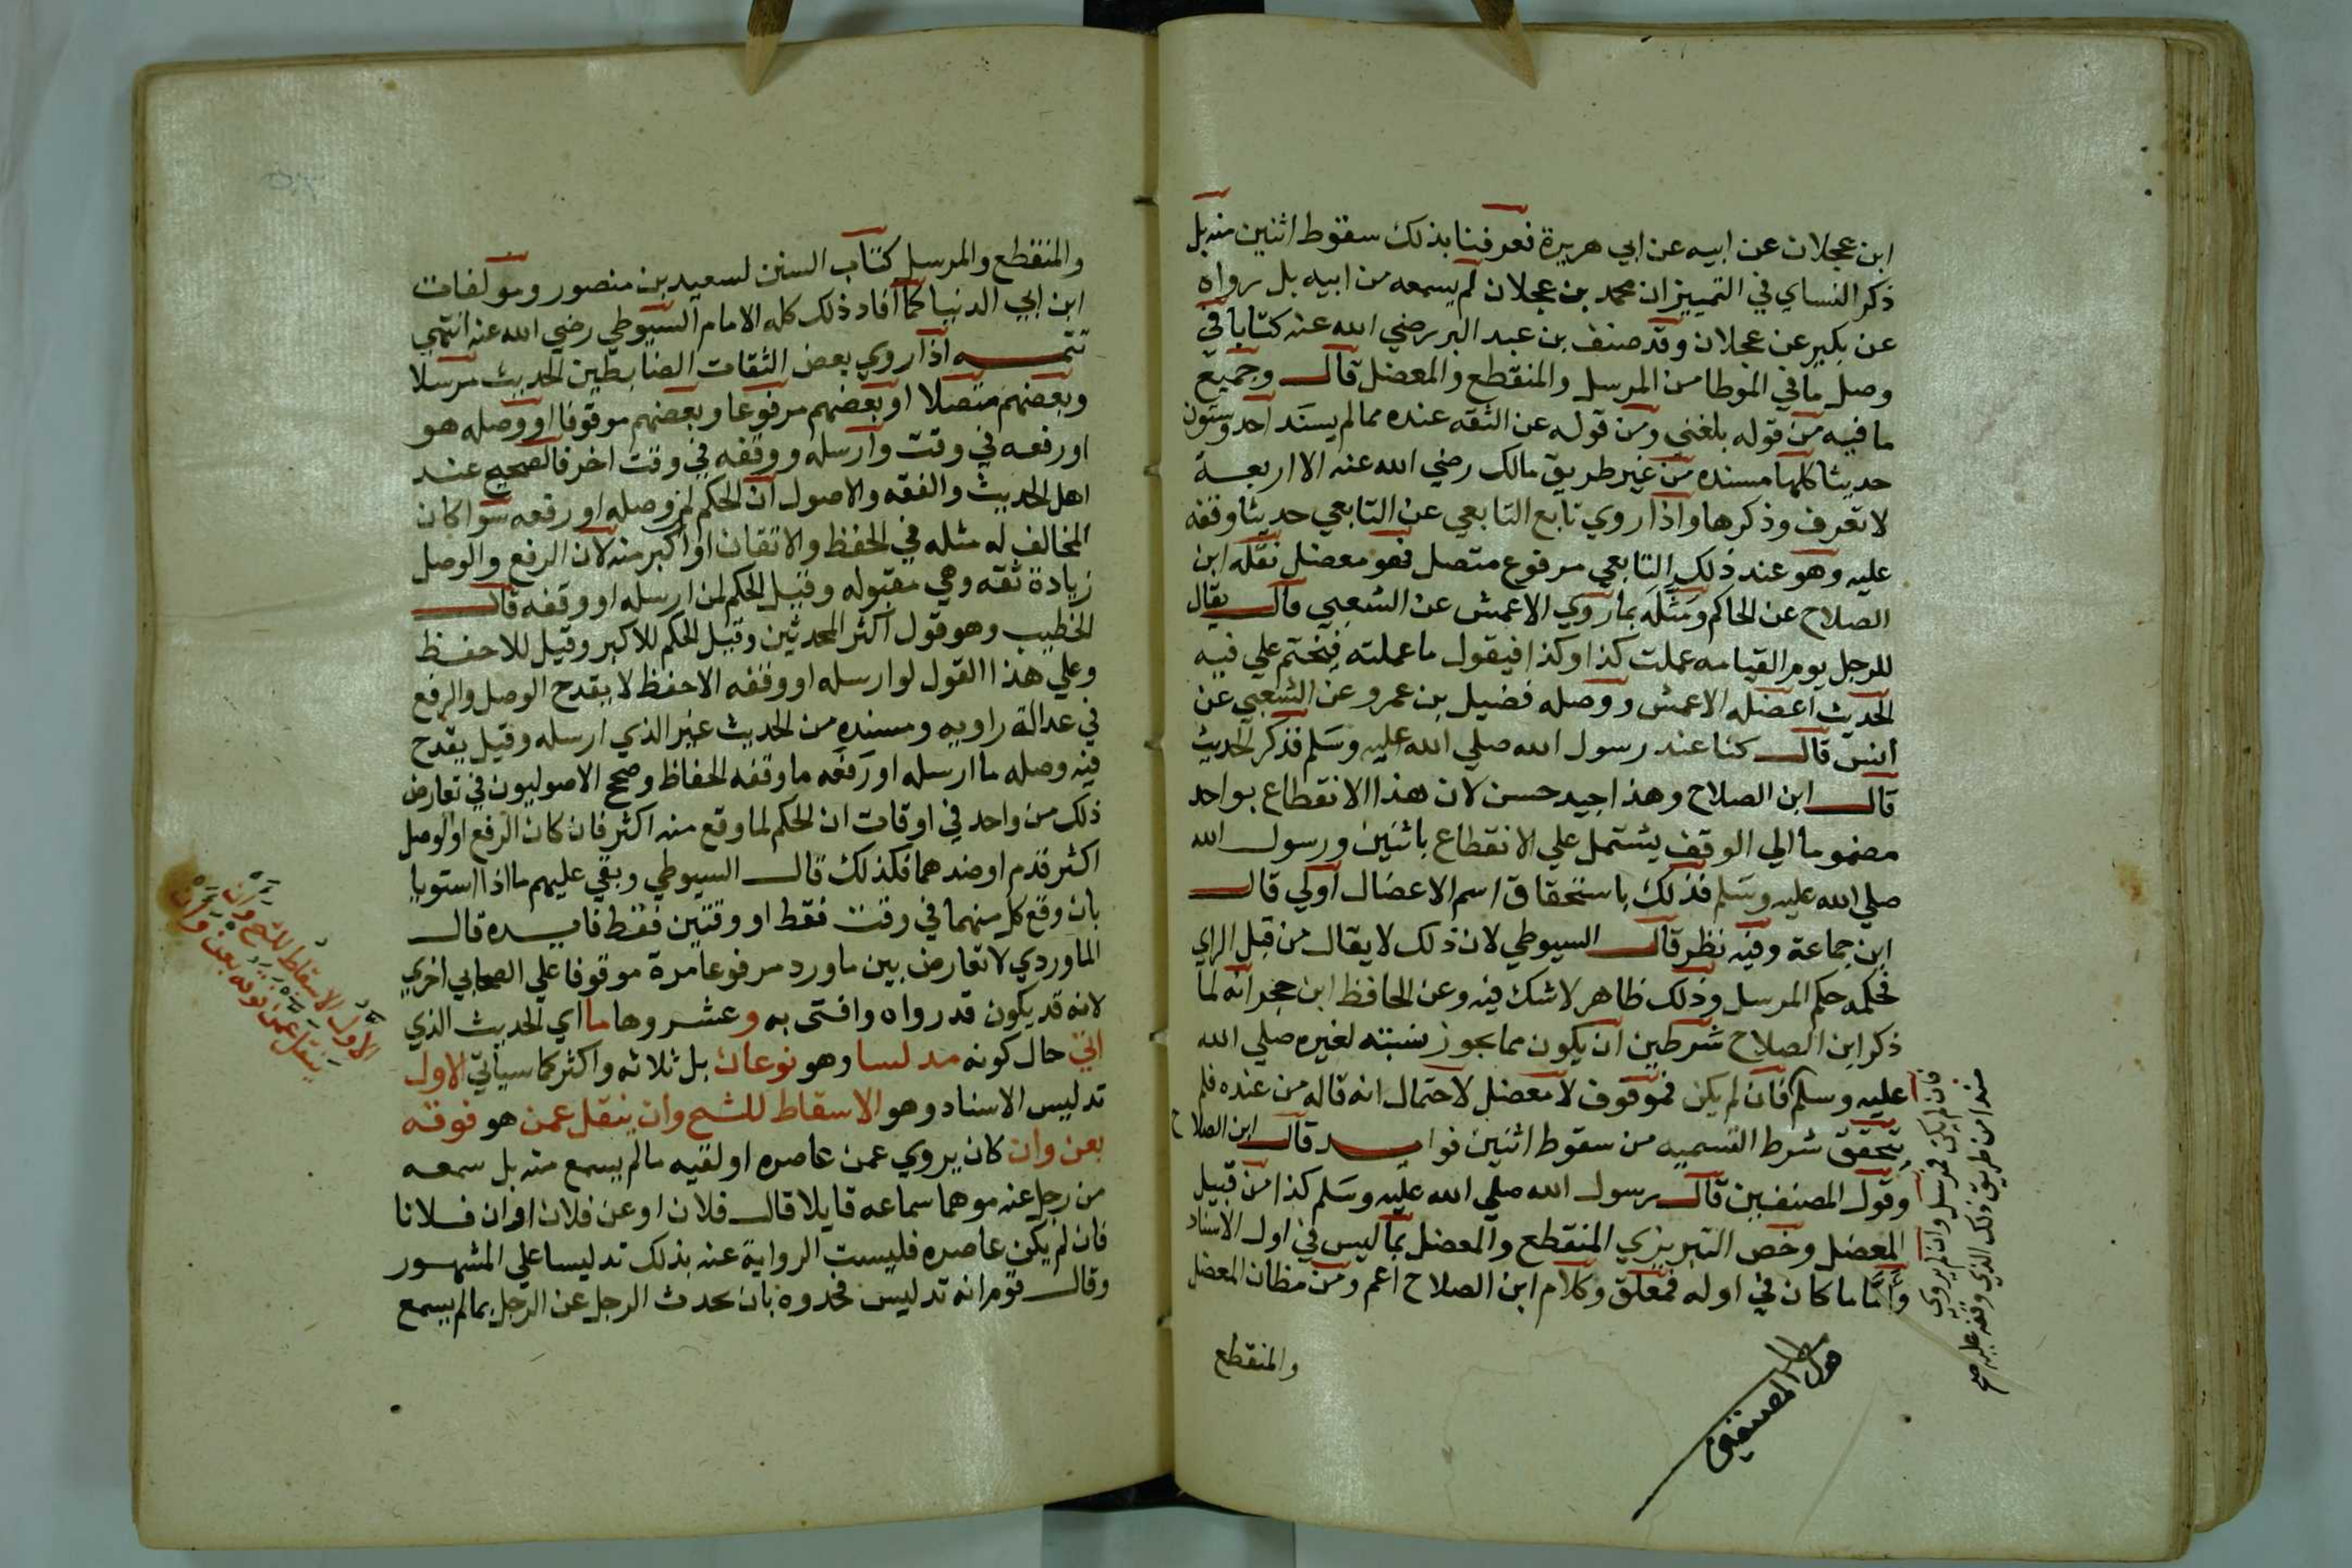 ابن عجلان عن ابيه عن ابي هريرة فعرفنا بذلك سقوط اثنين منه بل
ذكر النساي في التمييز ان محمد بن عجلان لم يسمعه من ابيه بل رواه
عن بكير عن عجلان وقد صنف بن عبد البر رضي الله عنه كتابا في
وصل ما في الموطا من المرسل والمنقطع والمعضل قال وجميع
ما فيه من قوله بلغني ومن قوله عن الثقه عنده مما لم يسند احد وستون
حديثا كلها مسنده من غير طريق مالك رضي الله عنه الا اربعة
لا تعرف وذكرها واذا روي تابع التابعي عن التابعي حديثا وقفه
عليه وهو عند ذلك التابعي مرفوع متصل فهو معضل نقله ابن
الصلاح عن الحاكم ومثله بما روي الاعمش عن الشعبي قال يقال
للرجل يوم القيامه عملت كذا وكذا فيقول ما عملته فيختم علي فيه
الحديث اعضله الاعمش ووصله فضيل بن عمرو عن الشعبي عن
انس قال كنا عند رسول الله صلي الله عليه وسلم فذكر الحديث
قال ابن الصلاح وهذا جيد حسن لان هذا الانقطاع بواحد
مضموما الي الوقف يشتمل علي الانقطاع باثنين ورسول الله
صلي الله عليه وسلم فذلك باستحقاق اسم الاعضال اولي قال
ابن جماعة وفيه نظر قال السيوطي لان ذلك لا يقال من قبل الراي
فحكمه حكم المرسل وذلك ظاهر لاشك فيه وعن الحافظ ابن حجر انه لما
ذكر ابن الصلاح شرطين ان يكون مما يجوز نسبته لغيره صلي الله
عليه وسلم فان لم يكن فموقوف لا معضل لاحتمال انه قاله من عنده فلم
يتحقق شرط التسميه من سقوط اثنين فوايد قال ابن الصلاح
وقول المصنفين قال رسول الله صلي الله عليه وسلم كذا من قبيل
المعضل وخص التبريزي المنقطع والمعضل بما ليس في اول الاسناد
واما ما كان في اوله فمعلق وكلام ابن الصلاح اعم ومن مظان المعضل
والمنقطع
فان لم يكن فمرسل وان لم يروي
مسندا من طريق ذلك الذي وقفه عليه صح
المصنفين
والمنقطع والمرسل كتاب السنن لسعيد بن منصور ومولفات
ابن ابي الدنيا كما افاد ذلك كله الامام السيوطي رضي الله عنه انتهي
تتمه اذا روي بعض الثقات الضابطين الحديث مرسلا
وبعضهم متصلا او بعضهم مرفوعا وبعضهم موقوفا او وصله هو
او رفعه في وقت وارسله ووقفه في وقت اخر فالصحيح عند
اهل الحديث والفقه والاصول ان الحكم لمن وصله او رفعه سوا كان
المخالف له مثله في الحفظ والاتقان او اكبر منه لان الرفع والوصل
زيادة ثقه وهي مقبوله وقيل الحكم لمن ارسله او وقفه قال
الخطيب وهو قول اكثر المحدثين وقيل الحكم للاكبر وقيل للاحفظ
وعلي هذا القول لو ارسله او وقفه الاحفظ لا يقدح الوصل والرفع
في عدالة راويه ومسنده من الحديث غير الذي ارسله وقيل يقدح
فيه وصله ما ارسله او رفعه ما وقفه الحفاظ وصحح الاصوليون في تعارض
ذلك من واحد في اوقات ان الحكم لما وقع منه اكثر فان كان الرفع او الوصل
اكثر قدم او ضدهما فكذلك قال السيوطي وبقي عليهم ما اذا استويا
بان وقع كل منهما في وقت فقط او وقتين فقط فايده قال
الماوردي لا تعارض بين ما ورد مرفوعا مرة موقوفا علي الصحابي اخري
لانه قد يكون قد رواه وافتى به وعشروها ما اي الحديث الذي
اتي حال كونه مدلسا وهو نوعان بل ثلاثه واكثر كما سياتي الاول
تدليس الاسناد وهو الاسقاط للشيح وان ينقل عمن هو فوقه
بعن وان كان يروي عمن عاصره او لقيه ما لم يسمع منه بل سمعه
من رجل عنه موهما سماعه قايلا قال فلان او عن فلان او ان فلانا
فان لم يكن عاصره فليست الرواية عنه بذلك تدليسا علي المشهور
وقال قوم انه تدليس فحدوه بان يحدث الرجل عن الرجل بما لم يسمع
الاول الاسقاط للشيح وان
ينقل عمن فوقه بعن وان